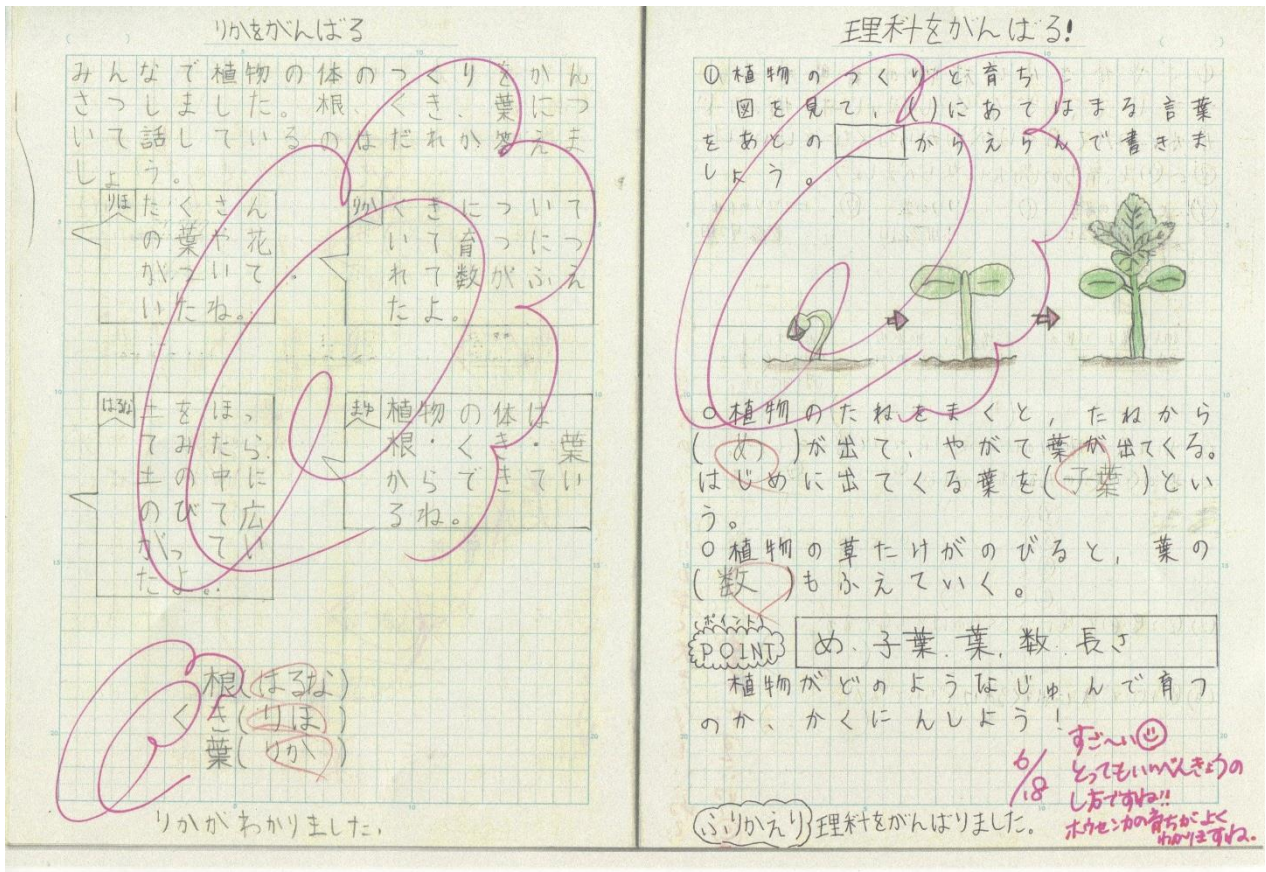 りかをがんばる
みんなで植物の体のつくりをかん
さつしました。根、くき、葉につ
いて話しているのはだれか答えま
しょう。
りほ
たくさん
の葉や花
がついて
いたね。
りか
くきについて
いて育つにつ
れて数がふえ
たよ。
はるな
土をほっ
てみたら、
土の中に
のびて広
がってい
たよ。
まゆ
植物の体は
根・くき・葉
からできてい
るね。
根(はるな)
くき(りほ)
葉(りか)
りかがわかりました。
理科をがんばる!
① 植物のつくりと育ち
図を見て、()にあてはまる言葉
をあとの からえらんで書きま
しょう。
○植物のたねをまくと,たねから
(め)が出て、やがて葉が出てくる。
はじめに出てくる葉を(子葉)とい
う。
○植物の草たけがのびると,葉の
(数)もふえていく。
ポイント
POINT
め、子葉、葉、数、長さ
植物がどのようなじゅんで育つ
のか、かくにんしよう!
6/18
すご〜い
とってもいいべんきょうの
し方ですね!!
ホウセンカの育ちがよく
わかりますね。
ふりかえり 理科をがんばりました。